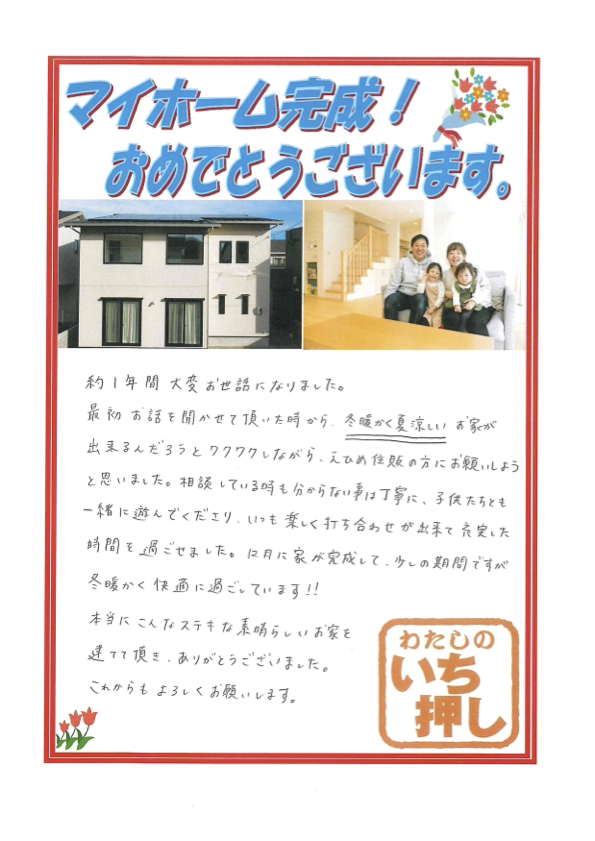 マイホーム完成！
おめでとうございます。
約1年間 大変お世話になりました。
最初 お話を聞かせて頂いた時から、冬暖かく夏涼しい お家が
出来るんだろうとワクワクしながら、えひめ住販の方にお願いしよう
と思いました。相談している時も分からない事は丁寧に、子供たちとも
一緒に遊んでくださり、いつも楽しく打ち合わせが出来て充実した
時間を過ごせました。12月に家が完成して、少しの期間ですが
冬暖かく快適に過ごしています!!
本当にこんなステキな素晴らしいお家を
建てて頂き、ありがとうございました。
これからもよろしくお願いします。
わたしの
いち
押し